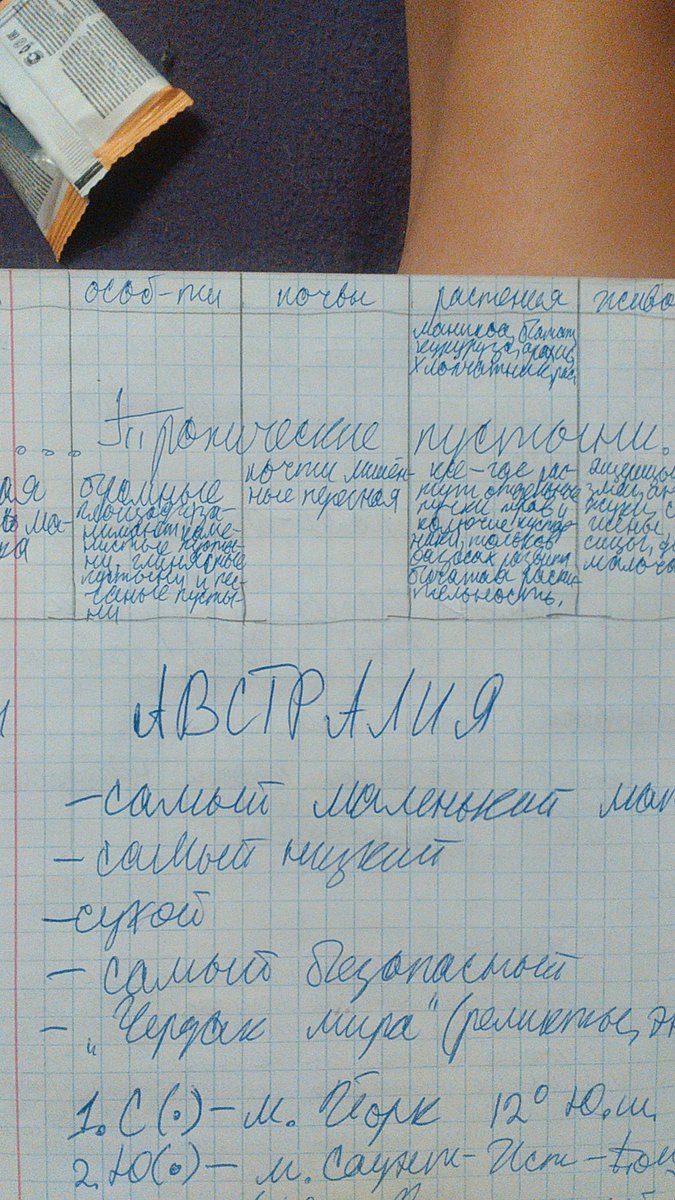 особ-ти почвы растения живо
маниока, батат
кукуруза, арахис
хлопчатник, рас
Тропические пустыни.
огромные
площади за-
нимают каме-
нистые пусты-
ни, глинистые
пустыни и пес-
чаные пусты-
ни
почти лишён-
ные перегная
кое-где рас-
тут отдельные
пучки трав и
колючие кустар-
ники, только в
оазисах развита
богатая расти-
тельность.
ящерицы
змеи
жуки, с
гиены
сицы
АВСТРАЛИЯ
- самый маленький мат
- самый низкий
- сухой
- самый безопасный
- „Чердак мира" (реликты, эн
1. С(•) - м. Йорк 12° Ю.ш.
2. Ю(•) - м. Саунт-Ист-